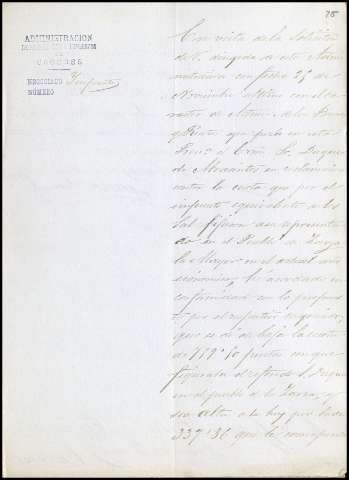 78
ADMINISTRACION
DE
CACERES
NEGOCIADO Impuestos
NÚMERO
Con vista de la Solicitud
de V. dirigida a esta Admi-
nistracion con fecha 25 de
Noviembre último con el ca-
racter de Admor. de los Bienes
y Rentas que posee en esta
Prov.ª el Excmo Sr. Duque
de en reclamacion
contra la cuota que por el
impuesto equivalente a la
Sal figura en
en el Pueblo de Zarza
la Mayor en el actual año
economico, he acordado de
conformidad con lo propues-
to por el repartidor
que se dé de baja la cuota
de 759' 60 pesetas con que
figuraba el referido Sr. Duque
en el pueblo de la Zarza, y
sea alta a la vez por la de
337'36 que le corresponde